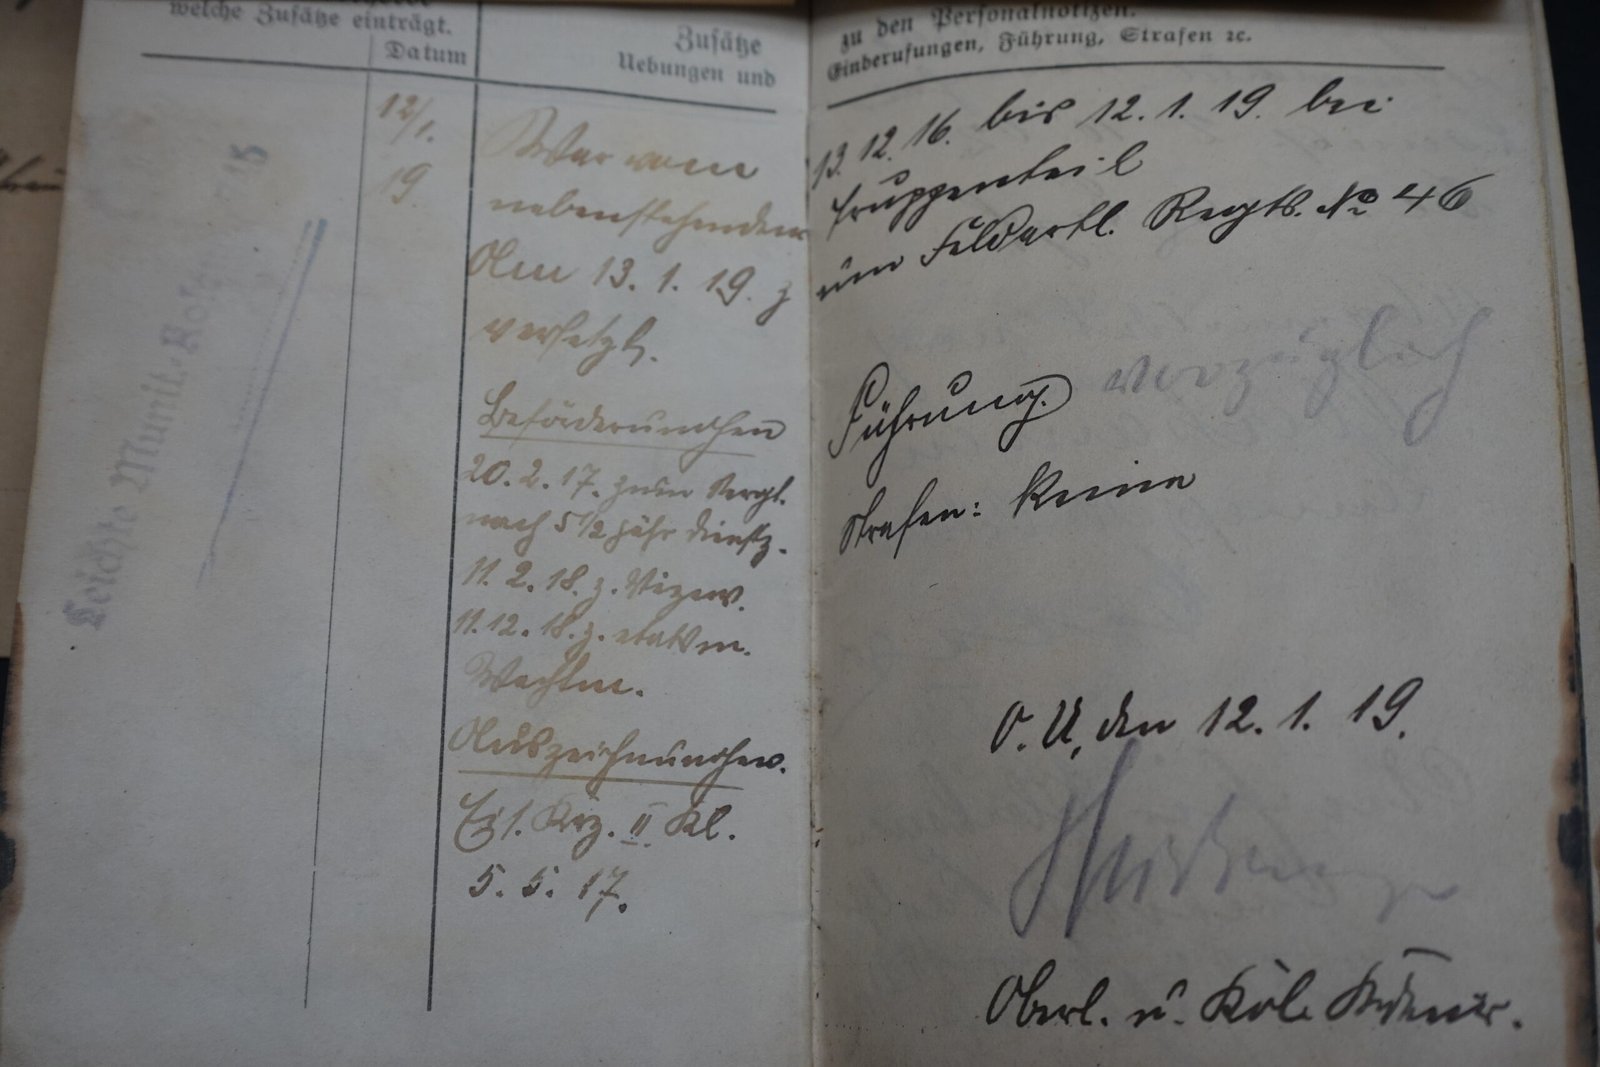 welche Zusätze einträgt.
Datum
Zusätze
Uebungen und
Leichte Munit.-Kol
12/1.
19.
War vom
nebenstehenden
Am 13. 1. 19. z
versetzt.
Beförderungen
20. 2. 17. zum Sergt.
nach 5 1/2 jähr Dienstz.
11. 2. 18. z. Vizew.
11. 12. 18. z. etatsm.
Wachtm.
Auszeichnungen.
Eis. Krz. II Kl.
5. 5. 17.
zu den Personalnotizen.
Einberufungen, Führung, Strafen ꝛc.
13. 12. 16. bis 12. 1. 19. bei
Truppenteil
um Feldartl. Regts. No 46
Führung. vorzüglich
Strafen: keine
O. U, den 12. 1. 19.
Oberl. u. Kol.